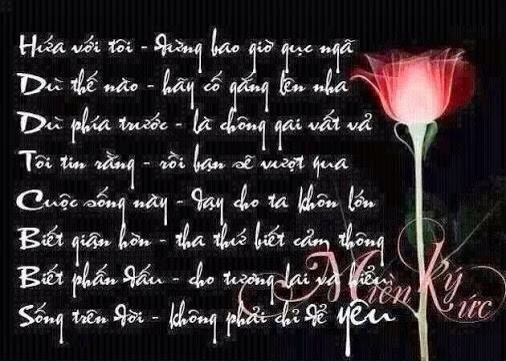 Hứa với tôi - đừng bao giờ gục ngã
Dù thế nào - hãy cố gắng lên nha
Dù phía trước - là chông gai vất vả
Tôi tin rằng - rồi bạn sẽ vượt qua
Cuộc sống này - dạy cho ta khôn lớn
Biết giận hờn - tha thứ biết cảm thông
Biết phấn đấu - cho tương lai và hiểu
Sống trên đời - không phải chỉ để yêu
Miền Ký Ức